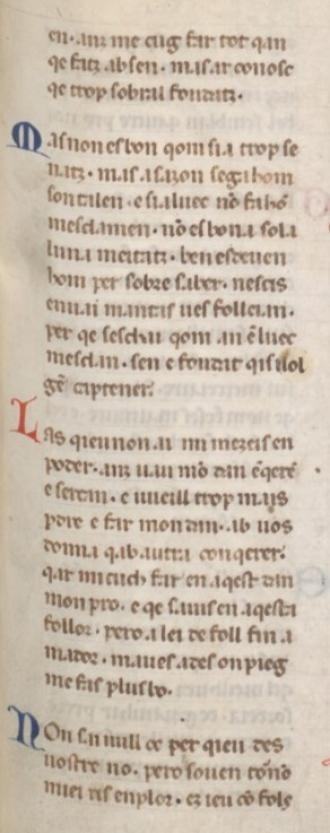 en. anz me cug far tot qan
qe fatz ab sen. mas ar conosc
qe trop sobral foudatz.
Mas non es bon qom sia trop se
natz. mas a sazon segahom
son talen. e si aluec nō fahō
mesclamen. nō es bona sola
lun a meitatz. ben esdeuen
hom per sobre saber. nescis
enuai mantas ues follean.
per qe seschai qom an ēluec
mesclan. sen e foudat qi sa lol
gē captener.
Las qieu non ai mi mezeis en
poder. anz uau mō dan ēqerē
e sercan. e uueill trop mais
pdre e far mon dan. ab uos
domna qab autra conqerer.
qar mi cuch far en aqest dan
mon pro. e qe sauis en aqesta
follor. pero a lei de foll fin a
mador. mauesades on pieg
me fas plus bo.
Non sai null oc per qieu des
uostre no. pero souen tōnō
miei ris en plor. ez ieu cō fols